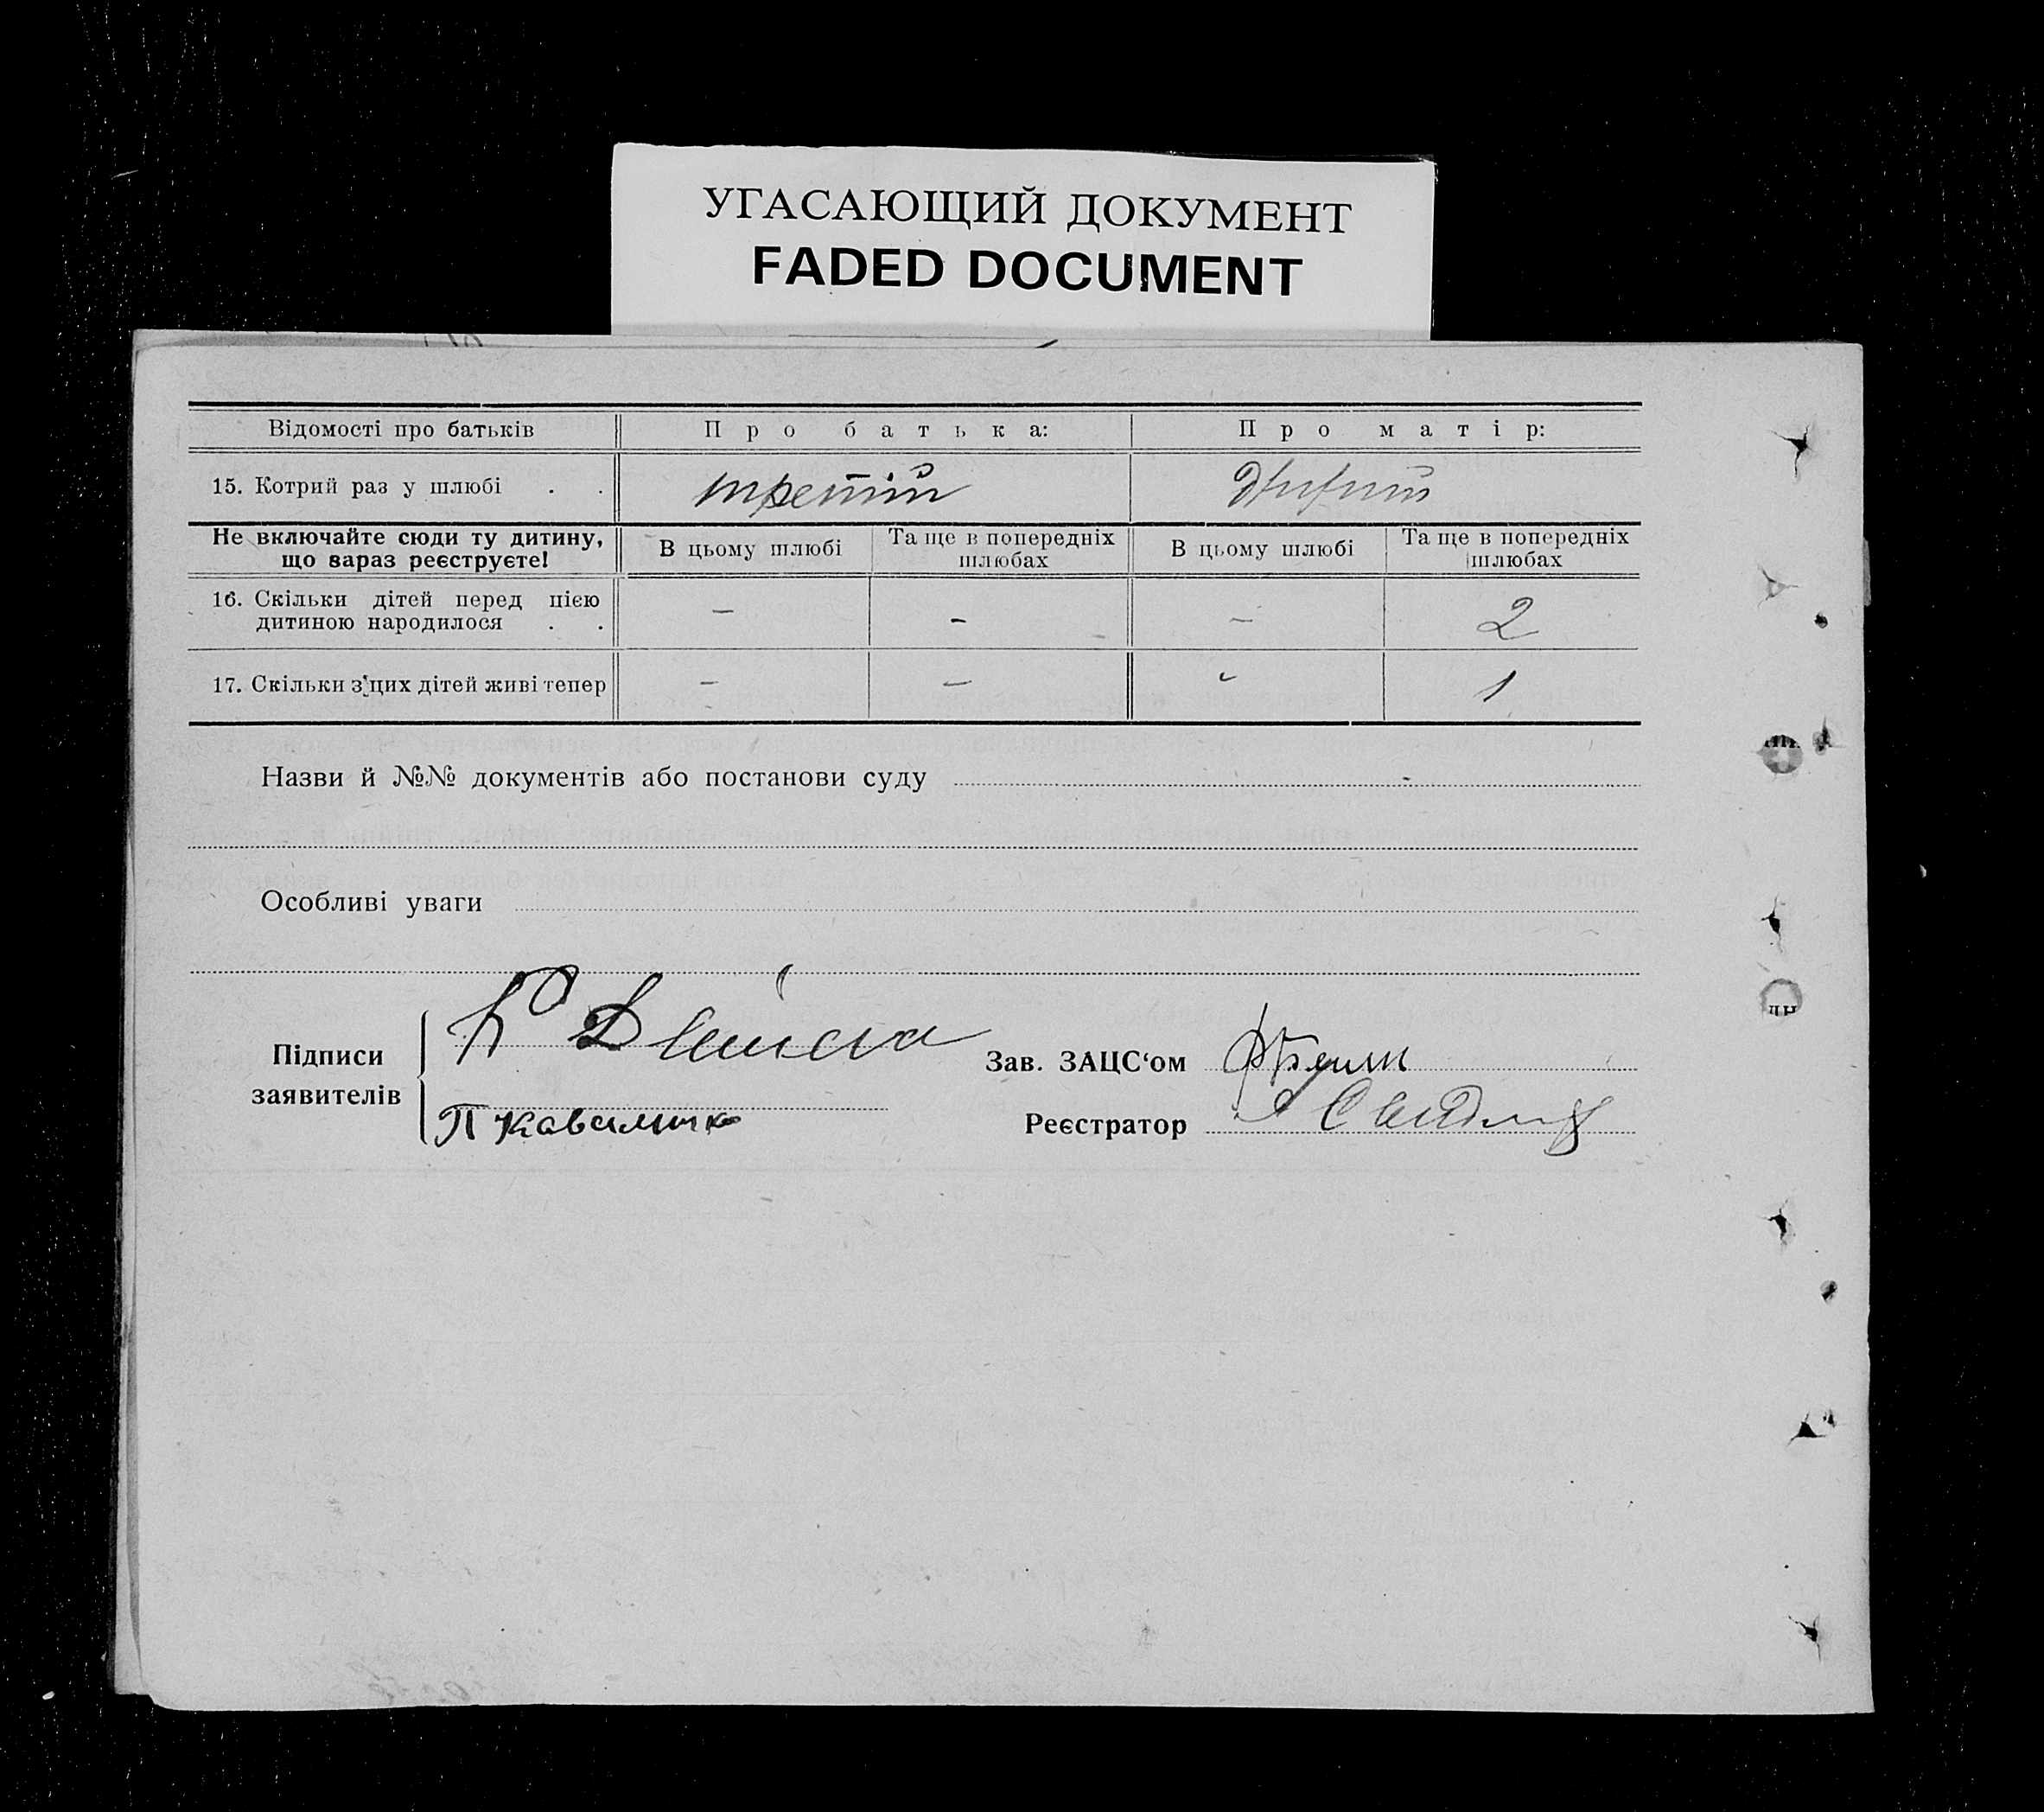 УГАСАЮЩИЙ ДОКУМЕНТ
FADED DOCUMENT
Відомості про батьків Про батька: Про матір:
15. Котрий раз у шлюбі . . третій другий
Не включайте сюди ту дитину, що вараз реєструєте! В цьому шлюбі Та ще в попередніх шлюбах В цьому шлюбі Та ще в попередніх шлюбах
16. Скільки дітей перед цією
дитиною народилося . . – - – 2
17. Скільки з'цих дітей живі тепер – – - 1
Назви й №№ документів або постанови суду -
Особливі уваги
Підписи
заявителів
П Коваленко
Зав. ЗАЦС‘ом
Реєстратор